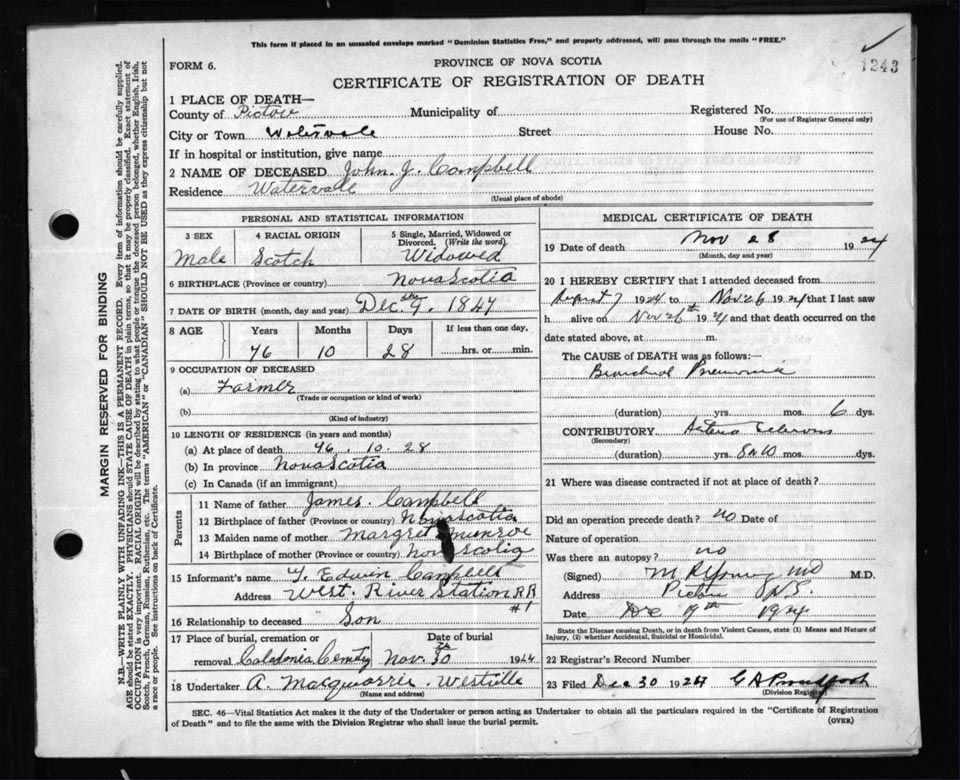 This form if placed in an unsealed envelope marked "Dominion Statistics Free," and properly addressed, will pass through the mails "FREE."
1243
FORM 6.
PROVINCE OF NOVA SCOTIA
CERTIFICATE OF REGISTRATION OF DEATH
1 PLACE OF DEATH—
County of Pictou Municipality of Registered No.
(For use of Registrar General only)
City or Town Street House No.
If in hospital or institution, give name
2 NAME OF DECEASED John. J. Campbell
Residence Watervale
(Usual place of abode)
PERSONAL AND STATISTICAL INFORMATION
3 SEX 4 RACIAL ORIGIN 5 Single, Married, Widowed or Divorced. (Write the word)
Male Scotch Widowed
6 BIRTHPLACE (Province or country) Nova Scotia
7 DATE OF BIRTH (month, day and year) Dec. 9th. 1847
8 AGE Years Months Days If less than one day,
76 10 28 hrs. or min.
9 OCCUPATION OF DECEASED
(a) Farmer
(Trade or occupation or kind of work)
(b)
(Kind of industry)
10 LENGTH OF RESIDENCE (in years and months)
(a) At place of death 76. 10. 28
(b) In province Nova Scotia
(c) In Canada (if an immigrant)
Parents
11 Name of father James. Campbell
12 Birthplace of father (Province or country) Nova Scotia
13 Maiden name of mother Margret Munroe
14 Birthplace of mother (Province or country) Nova Scotia
15 Informant's name Edwin Campbell
Address West. River Station RR #1
16 Relationship to deceased Son
17 Place of burial, cremation or Date of burial
removal Caledonia Cemtry Nov. 30 1924
18 Undertaker A. Macquarrie Westville
(Name and address)
MEDICAL CERTIFICATE OF DEATH
19 Date of death Nov 28 1924
(Month, day and year)
20 I HEREBY CERTIFY that I attended deceased from
August 7 1924 to Nov 26 1924 that I last saw
h alive on Nov 26th 1924 and that death occurred on the
date stated above, at m.
The CAUSE of DEATH was as follows:
Bronchial Pneumonia
(duration) yrs. mos. 6 dys.
CONTRIBUTORY Arterio Sclerosis
(Secondary)
(duration) yrs. mos. dys.
21 Where was disease contracted if not at place of death?
Did an operation precede death? no Date of
Nature of operation
Was there an autopsy? no
(Signed) M R Young MD M.D.
Address Pictou N.S.
Date Dec 19th 1924
State the Disease causing Death, or in death from Violent Causes, state (1) Means and Nature of
Injury, (2) whether Accidental, Suicidal or Homicidal.
22 Registrar's Record Number
23 Filed Dec 30 1924 G A Proudfoot
(Division Registrar)
SEC. 46—Vital Statistics Act makes it the duty of the Undertaker or person acting as Undertaker to obtain all the particulars required in the "Certificate of Registration
of Death" and to file the same with the Division Registrar who shall issue the burial permit.
(OVER)
MARGIN RESERVED FOR BINDING
N.B.—WRITE PLAINLY WITH UNFADING INK—THIS IS A PERMANENT RECORD. Every item of information should be carefully supplied.
AGE should be stated EXACTLY. PHYSICIANS should STATE CAUSE OF DEATH in plain terms, so that it may be properly classified. Exact statement of
OCCUPATION is very important. RACIAL ORIGIN will be described by stating to what people or tongue the deceased person belonged, whether English, Irish,
Scotch, French, German, Russian, Ruthenian, etc. The terms "AMERICAN" or "CANADIAN" SHOULD NOT BE USED as they express citizenship but not
a race or people. See instructions on back of Certificate.